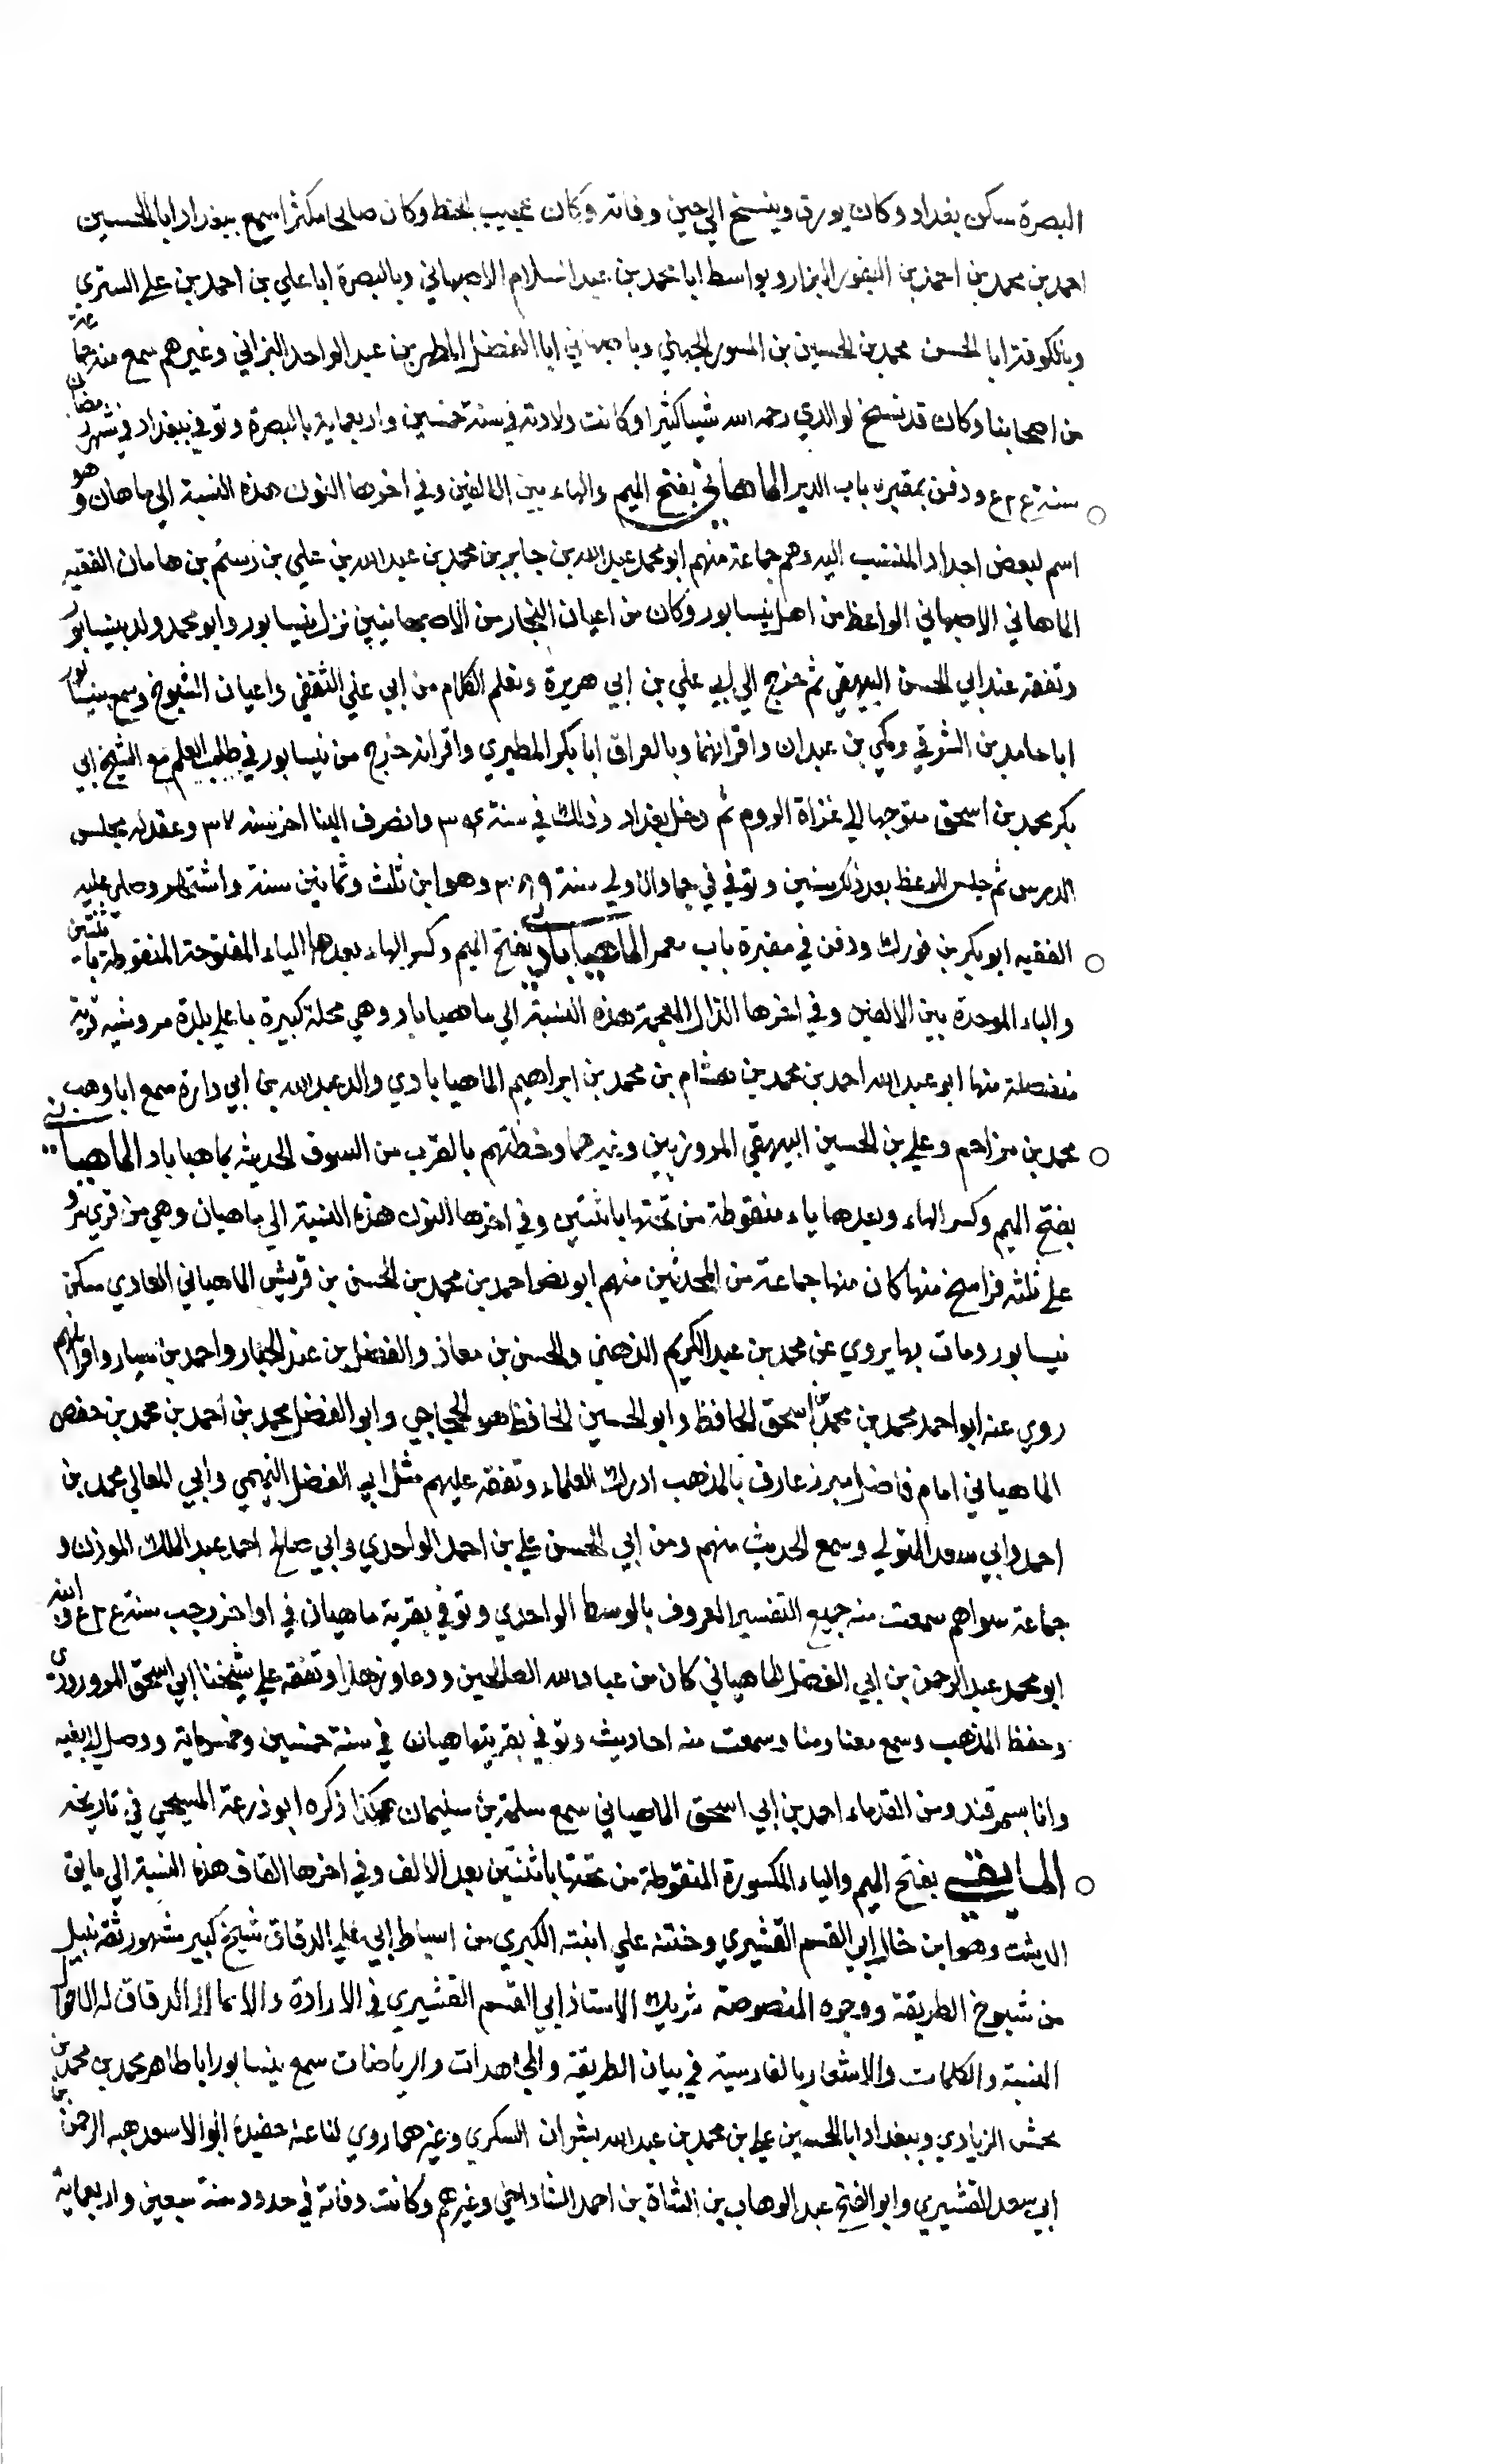 البصرة سكن بغداد وكان يورق وينسخ الي حين وفاته وكان عجيب الخط وكان صالحا مكثرا سمع ببغداد ابا الحسين
احمد بن محمد بن احمد بن النقور البزار وبواسط ابا محمد بن عبد السلام الاصبهاني وبالبصرة ابا علي بن احمد بن علي الستري
وبالكوفة ابا الحسن محمد بن الحسين بن المسور الجهني وباصبهاني ابا الفضل المطهر بن عبد الواحد البزاني وغيرهم سمع منه جماعة
من اصحابنا وكان قد نسخ لوالدي رحمه الله شيا كثيرا وكانت ولادته في سنة خمسين واربعماية بالبصرة وتوفي ببغداد في شهر رمضان
سنة ودفن بمقبرة باب الدير الماهاني بفتح الميم والهاء بين الالفين وفي اخرها النون هذه النسبة الي ماهان وهو
اسم لبعض اجداد المنتسب اليه وهم جماعة منهم ابو محمد عبد الله بن جابر بن محمد بن عبد الله بن علي بن رستم بن هامان الفقيه
الماهاني الاصبهاني الواعظ من اهل نيسابور وكان من اعيان التجار من الاصبهانيين نزل نيسابور وابو محمد ولد بنيسابور
وتفقه عند ابي الحسن البيهقي ثم خرج الي ابي علي بن ابي هريرة وتعلم الكلام من ابي علي الثقفي واعيان الشيوخ وسمع بنيسابور
ابا حامد بن الشرقي ومكي بن عبدان واقرانهما وبالعراق ابا بكر المطيري واقرانه خرج من نيسابور في طلب العلم مع الشيخ ابي
بكر محمد بن اسحق متوجها الي غزاة الروم ثم دخل بغداد وذلك في سنة وانصرف الينا اخر سنة ٣٧ وعقد له مجلس
الدرس ثم جلس للوعظ بعد ذلك سنين وتوفي في جماد الاولي سنة ٣٨٩ وهو ابن ثلث وثمانين سنة وصلي عليه
الفقيه ابو بكر بن فورك ودفن في مقبرة باب معمر الماهيابادي بفتح الميم وكسر الهاء بعدها الياء المفتوحة المنقوطة باثنتين
والباء الموحدة بين الالفين وفي اخرها الذال المعجمة هذه النسبة الي ماهياباد وهي محلة كبيرة باعلي بلدة مرو شبه قرية
منفصلة منها ابو عبد الله احمد بن محمد بن هشام بن محمد بن ابراهيم الماهيابادي والد عبد الله بن ابي دارة سمع ابا وهب
محمد بن مزاحم وعلي بن الحسين البيهقي المروزيين وغيرهما وخطتهم بالقرب من السوق الحديثه بماهياباد الماهياني
بفتح الميم وكسر الهاء وبعدها ياء منقوطة من تحتها باثنتين وفي اخرها النون هذه النسبة الي ماهيان وهي من قري مرو
علي ثلثه فراسخ منها كان منها جماعة من المحدثين منهم ابو نصر احمد بن محمد بن الحسن بن قريش الماهياني العادي سكن
نيسابور ومات بها يروي عن محمد بن عبد الكريم الذهني والحسن بن معاذ والفضل بن عبد الجبار واحمد بن سيار واقرانهم
روي عنه ابو احمد محمد بن محمد بن اسحق الحافظ وابو الحسين الحافظ هو الحجاجي وابو الفضل محمد بن احمد بن محمد بن حفص
الماهياني امام فاضل مبرز عارف بالمذهب ادرك العلماء وتفقه عليهم مثل ابي الفضل التيمي وابي المعالي محمد بن
احمد وابي سعد المتولي وسمع الحديث منهم ومن ابي الحسن علي بن احمد الواحدي وابي صالح احمد عبد الملك الموذن و
جماعة سواهم سمعت منه جميع التفسير المعروف بالوسط الواحدي وتوفي بقرية ماهيان في اواخر رجب سنة وابنه
ابو محمد عبد الرحمن بن ابي الفضل الماهياني كان من عباد الله الصالحين ورعا وزهدا وتفقه علي شيخنا ابي اسحق المرورودي
وحفظ المذهب وسمع معنا ومنا وسمعت منه احاديث وتوفي بقريته ماهيان في سنة خمسين وخمسماية ووصل الي نعيه
وانا بسمرقند ومن القدماء احمد بن ابي اسحق الماهياني سمع سلمة بن سليمان هكذا ذكره ابو ذرعة المسيحي في تاريخه
المايقي بفتح الميم والياء المكسورة المنقوطة من تحتها باثنتين بعد الالف وفي اخرها القاف هذه النسبة الي مايق
الدشت وهو ابن خال ابي القسم القشيري وختنه علي ابنته الكبري من اسباط ابي علي الدقاق شيخ كبير مشهور ثقة نبيل
من شيوخ الطريقة ووجوه المنصوصة شريك الاستاذ ابي القسم القشيري في الارادة والانتما الي الدقاق له الاحوال
السنية والكلمات والاشعار بالفارسية في بيان الطريقة والمجاهدات والرياضات سمع بنيسابور ابا طاهر محمد بن محمد بن
محمش الزيادي وببغداد ابا الحسين علي بن محمد بن عبد الله بشران السكري وغيرهما روي لنا عنه حفيده ابو الاسعد هبه الرحمن بن
ابي سعد القشيري وابو الفتح عبد الوهاب بن الشاة بن احمد الشاذياخي وغيرهم وكانت وفاته في حدود سنة سبعين واربعماية